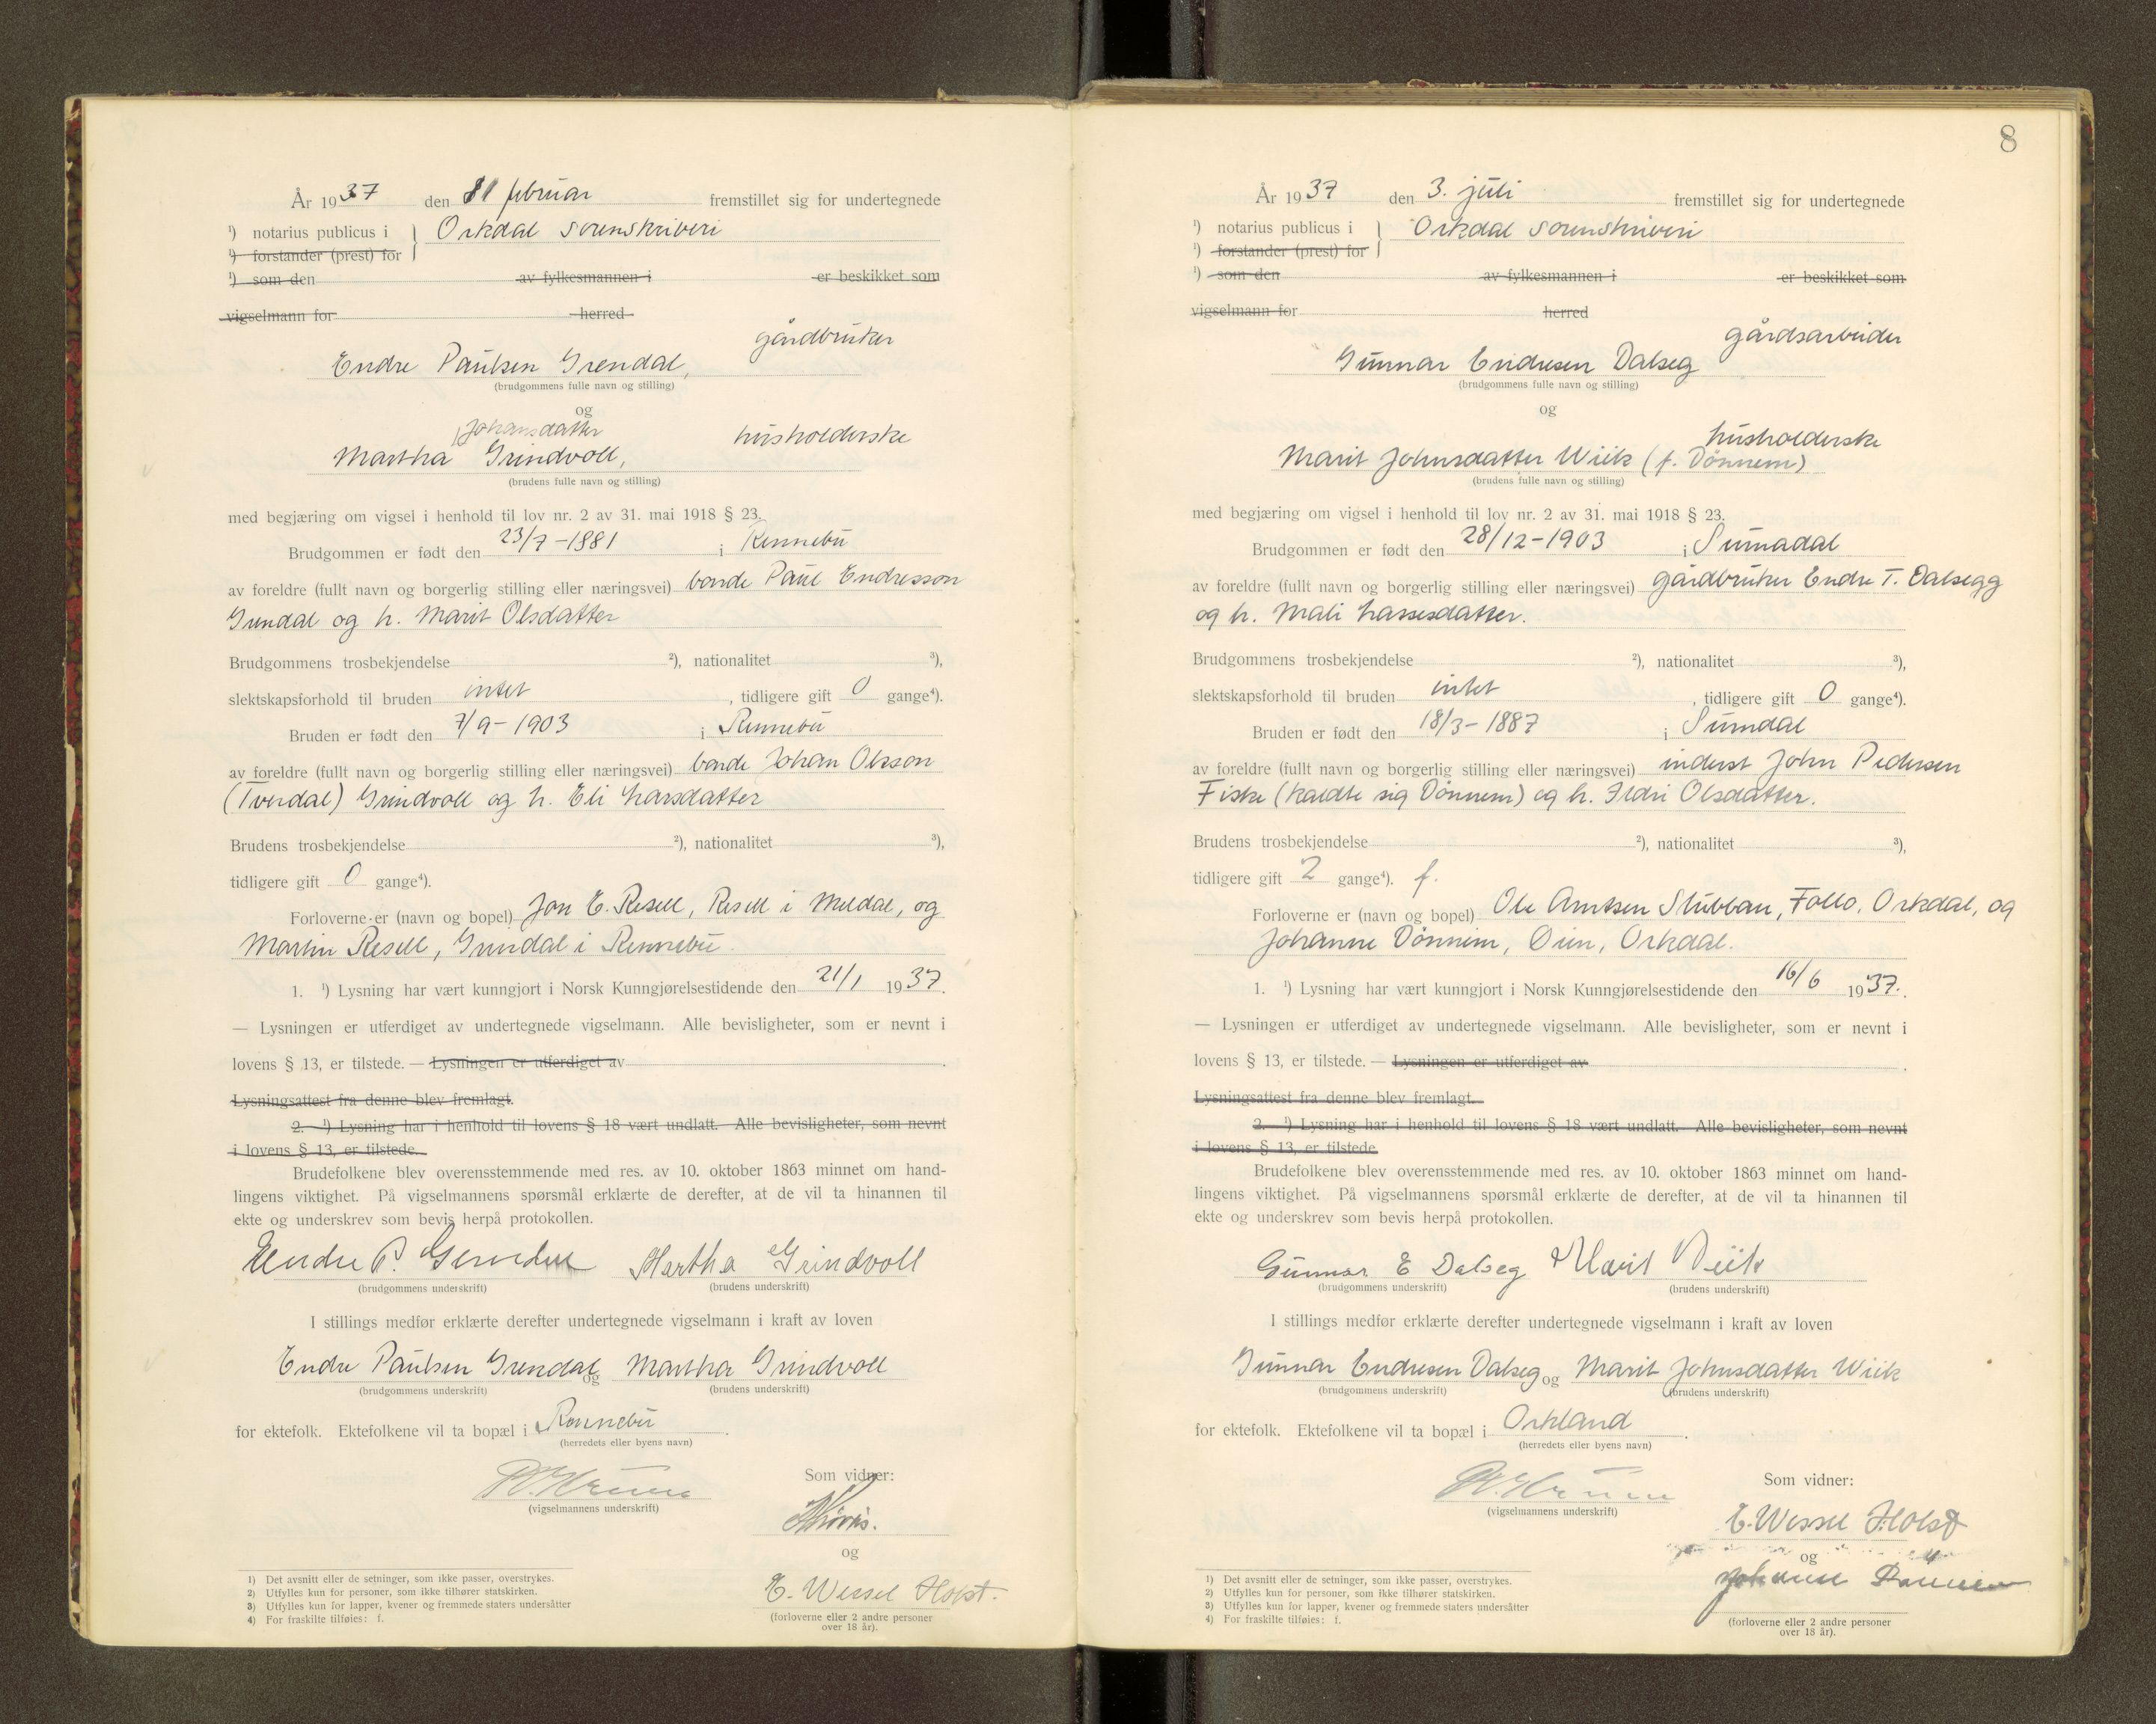 År 1937 den 11 februar fremstillet sig for undertegnede
¹) notarius publicus i } Orkdal sorenskriveri
¹) forstander (prest) for
¹) som den av fylkesmannen i er beskikket som
vigselmann for herred
gårdbruker
Endre Paulsen Grendal,
(brudgommens fulle navn og stilling)
og
Johansdatter husholderske
Martha Grindvoll,
(brudens fulle navn og stilling)
med begjæring om vigsel i henhold til lov nr. 2 av 31. mai 1918 § 23.
Brudgommen er født den 23/7-1881 i Rennebu
av foreldre (fullt navn og borgerlig stilling eller næringsvei) bonde Paul Endresson
Grendal og h. Marit Olsdatter
Brudgommens trosbekjendelse ²), nationalitet ³),
slektskapsforhold til bruden intet, tidligere gift 0 gange⁴).
Bruden er født den 7/9-1903 i Rennebu
av foreldre (fullt navn og borgerlig stilling eller næringsvei) bonde Johan Olsson
(Tverdal) Grindvoll og h. Eli Larsdatter
Brudens trosbekjendelse ²), nationalitet ³),
tidligere gift 0 gange⁴).
Forloverne er (navn og bopel) Jon E. Resell, Resell i Meldal, og
Martin Resell, Grendal i Rennebu.
1. ¹) Lysning har vært kunngjort i Norsk Kunngjørelsestidende den 21/1 1937.
— Lysningen er utferdiget av undertegnede vigselmann. Alle bevisligheter, som er nevnt i
lovens § 13, er tilstede. — Lysningen er utferdiget av
Lysningsattest fra denne blev fremlagt.
2. ¹) Lysning har i henhold til lovens § 18 vært undlatt. Alle bevisligheter, som nevnt
i lovens § 13, er tilstede.
Brudefolkene blev overensstemmende med res. av 10. oktober 1863 minnet om hand-
lingens viktighet. På vigselmannens spørsmål erklærte de derefter, at de vil ta hinannen til
ekte og underskrev som bevis herpå protokollen.
Endre P. Grendal Martha Grindvoll
(brudgommens underskrift) (brudens underskrift)
I stillings medfør erklærte derefter undertegnede vigselmann i kraft av loven
Endre Paulsen Grendal og Martha Grindvoll
(brudgommens underskrift) (brudens underskrift)
for ektefolk. Ektefolkene vil ta bopæl i Rennebu.
(herredets eller byens navn)
Som vidner:
(vigselmannens underskrift)
og
E. Wessel Holst.
(forloverne eller 2 andre personer
over 18 år).
1) Det avsnitt eller de setninger, som ikke passer, overstrykes.
2) Utfylles kun for personer, som ikke tilhører statskirken.
3) Utfylles kun for lapper, kvener og fremmede staters undersåtter
4) For fraskilte tilføies: f.
8
År 1937 den 3. juli fremstillet sig for undertegnede
¹) notarius publicus i } Orkdal sorenskriveri
¹) forstander (prest) for
¹) som den av fylkesmannen i er beskikket som
vigselmann for herred
gårdsarbeider
Gunnar Endresen Dalseg
(brudgommens fulle navn og stilling)
og
husholderske
Marit Johnsdatter Wiik (f. Dønnem)
(brudens fulle navn og stilling)
med begjæring om vigsel i henhold til lov nr. 2 av 31. mai 1918 § 23.
Brudgommen er født den 28/12-1903 i Surnadal
av foreldre (fullt navn og borgerlig stilling eller næringsvei) gårdbruker Endre T. Dalsegg
og h. Mali Lassesdatter.
Brudgommens trosbekjendelse ²), nationalitet ³),
slektskapsforhold til bruden intet, tidligere gift 0 gange⁴).
Bruden er født den 18/3-1887 i Surndal
av foreldre (fullt navn og borgerlig stilling eller næringsvei) inderst John Pedersen
Fiske (kaldte sig Dønnem) og h. Ildri Olsdatter.
Brudens trosbekjendelse ²), nationalitet ³),
tidligere gift 2 gange⁴). f.
Forloverne er (navn og bopel) Ole Arntsen Stubban, Follo, Orkdal, og
Johanne Dønnem, Øien, Orkdal.
1. ¹) Lysning har vært kunngjort i Norsk Kunngjørelsestidende den 16/6 1937.
— Lysningen er utferdiget av undertegnede vigselmann. Alle bevisligheter, som er nevnt i
lovens § 13, er tilstede. — Lysningen er utferdiget av
Lysningsattest fra denne blev fremlagt.
2. ¹) Lysning har i henhold til lovens § 18 vært undlatt. Alle bevisligheter, som nevnt
i lovens § 13, er tilstede.
Brudefolkene blev overensstemmende med res. av 10. oktober 1863 minnet om hand-
lingens viktighet. På vigselmannens spørsmål erklærte de derefter, at de vil ta hinannen til
ekte og underskrev som bevis herpå protokollen.
Gunnar E Dalseg Marit Wiik
(brudgommens underskrift) (brudens underskrift)
I stillings medfør erklærte derefter undertegnede vigselmann i kraft av loven
Gunnar Endresen Dalseg og Marit Johnsdatter Wiik
(brudgommens underskrift) (brudens underskrift)
for ektefolk. Ektefolkene vil ta bopæl i Orkland.
(herredets eller byens navn)
Som vidner:
(vigselmannens underskrift)
E. Wessel Holst
og
Johanne Dønnem
(forloverne eller 2 andre personer
over 18 år).
1) Det avsnitt eller de setninger, som ikke passer, overstrykes.
2) Utfylles kun for personer, som ikke tilhører statskirken.
3) Utfylles kun for lapper, kvener og fremmede staters undersåtter
4) For fraskilte tilføies: f.